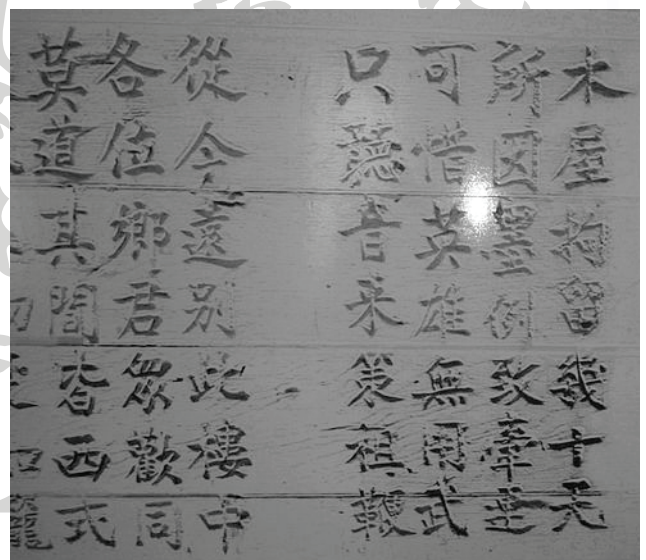 木屋拘留幾十天
所囚墨例致牽連
可惜英雄無用武
只聽音来策祖鞭
從今遠別此樓中
各位鄉君眾歡同
莫道其間皆西式